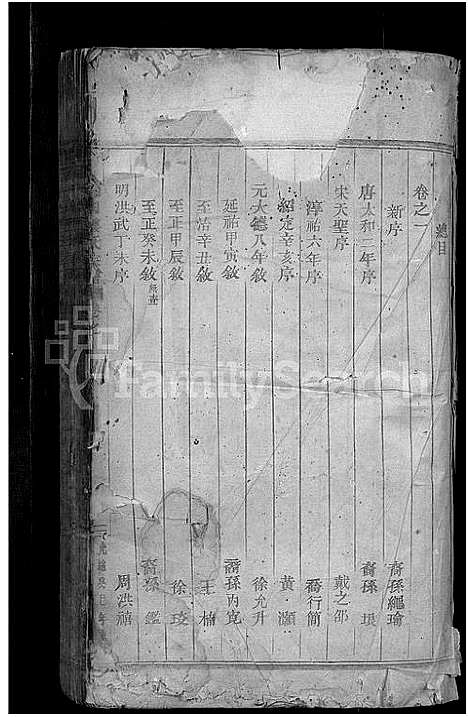 總目
卷之一
新序 裔孫繩瑜
唐太和二年序 裔孫 垠
宋天聖序 戴之邵
淳祐六年序 喬行簡
紹定辛亥序 黃灝
元大德八年敘 徐允升
延祐甲寅敘 裔孫丙寬
至治辛丑敘 王楠
至正甲辰敘 徐夌
至正癸未敘 裔孫 鑑
明洪武丁未序 周洪禧
FamilySearch